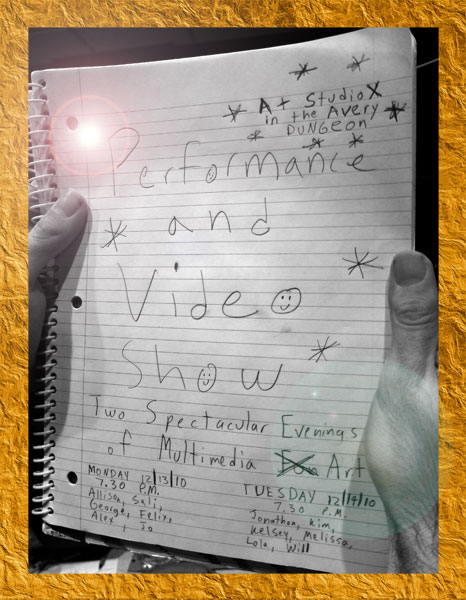 At Studio X
in the Avery
DUNGeon
Performance
and
Video
Show
Two Spectacular Evenings
of Multimedia Art
MONDAY 12/13/10
7.30 P.M.
Allison, Sali,
George, Felix,
Alex, Jo
TUESDAY 12/14/10
7.30 P.M.
Jonathan, Kim,
Kelsey, Melissa,
Lola, Will